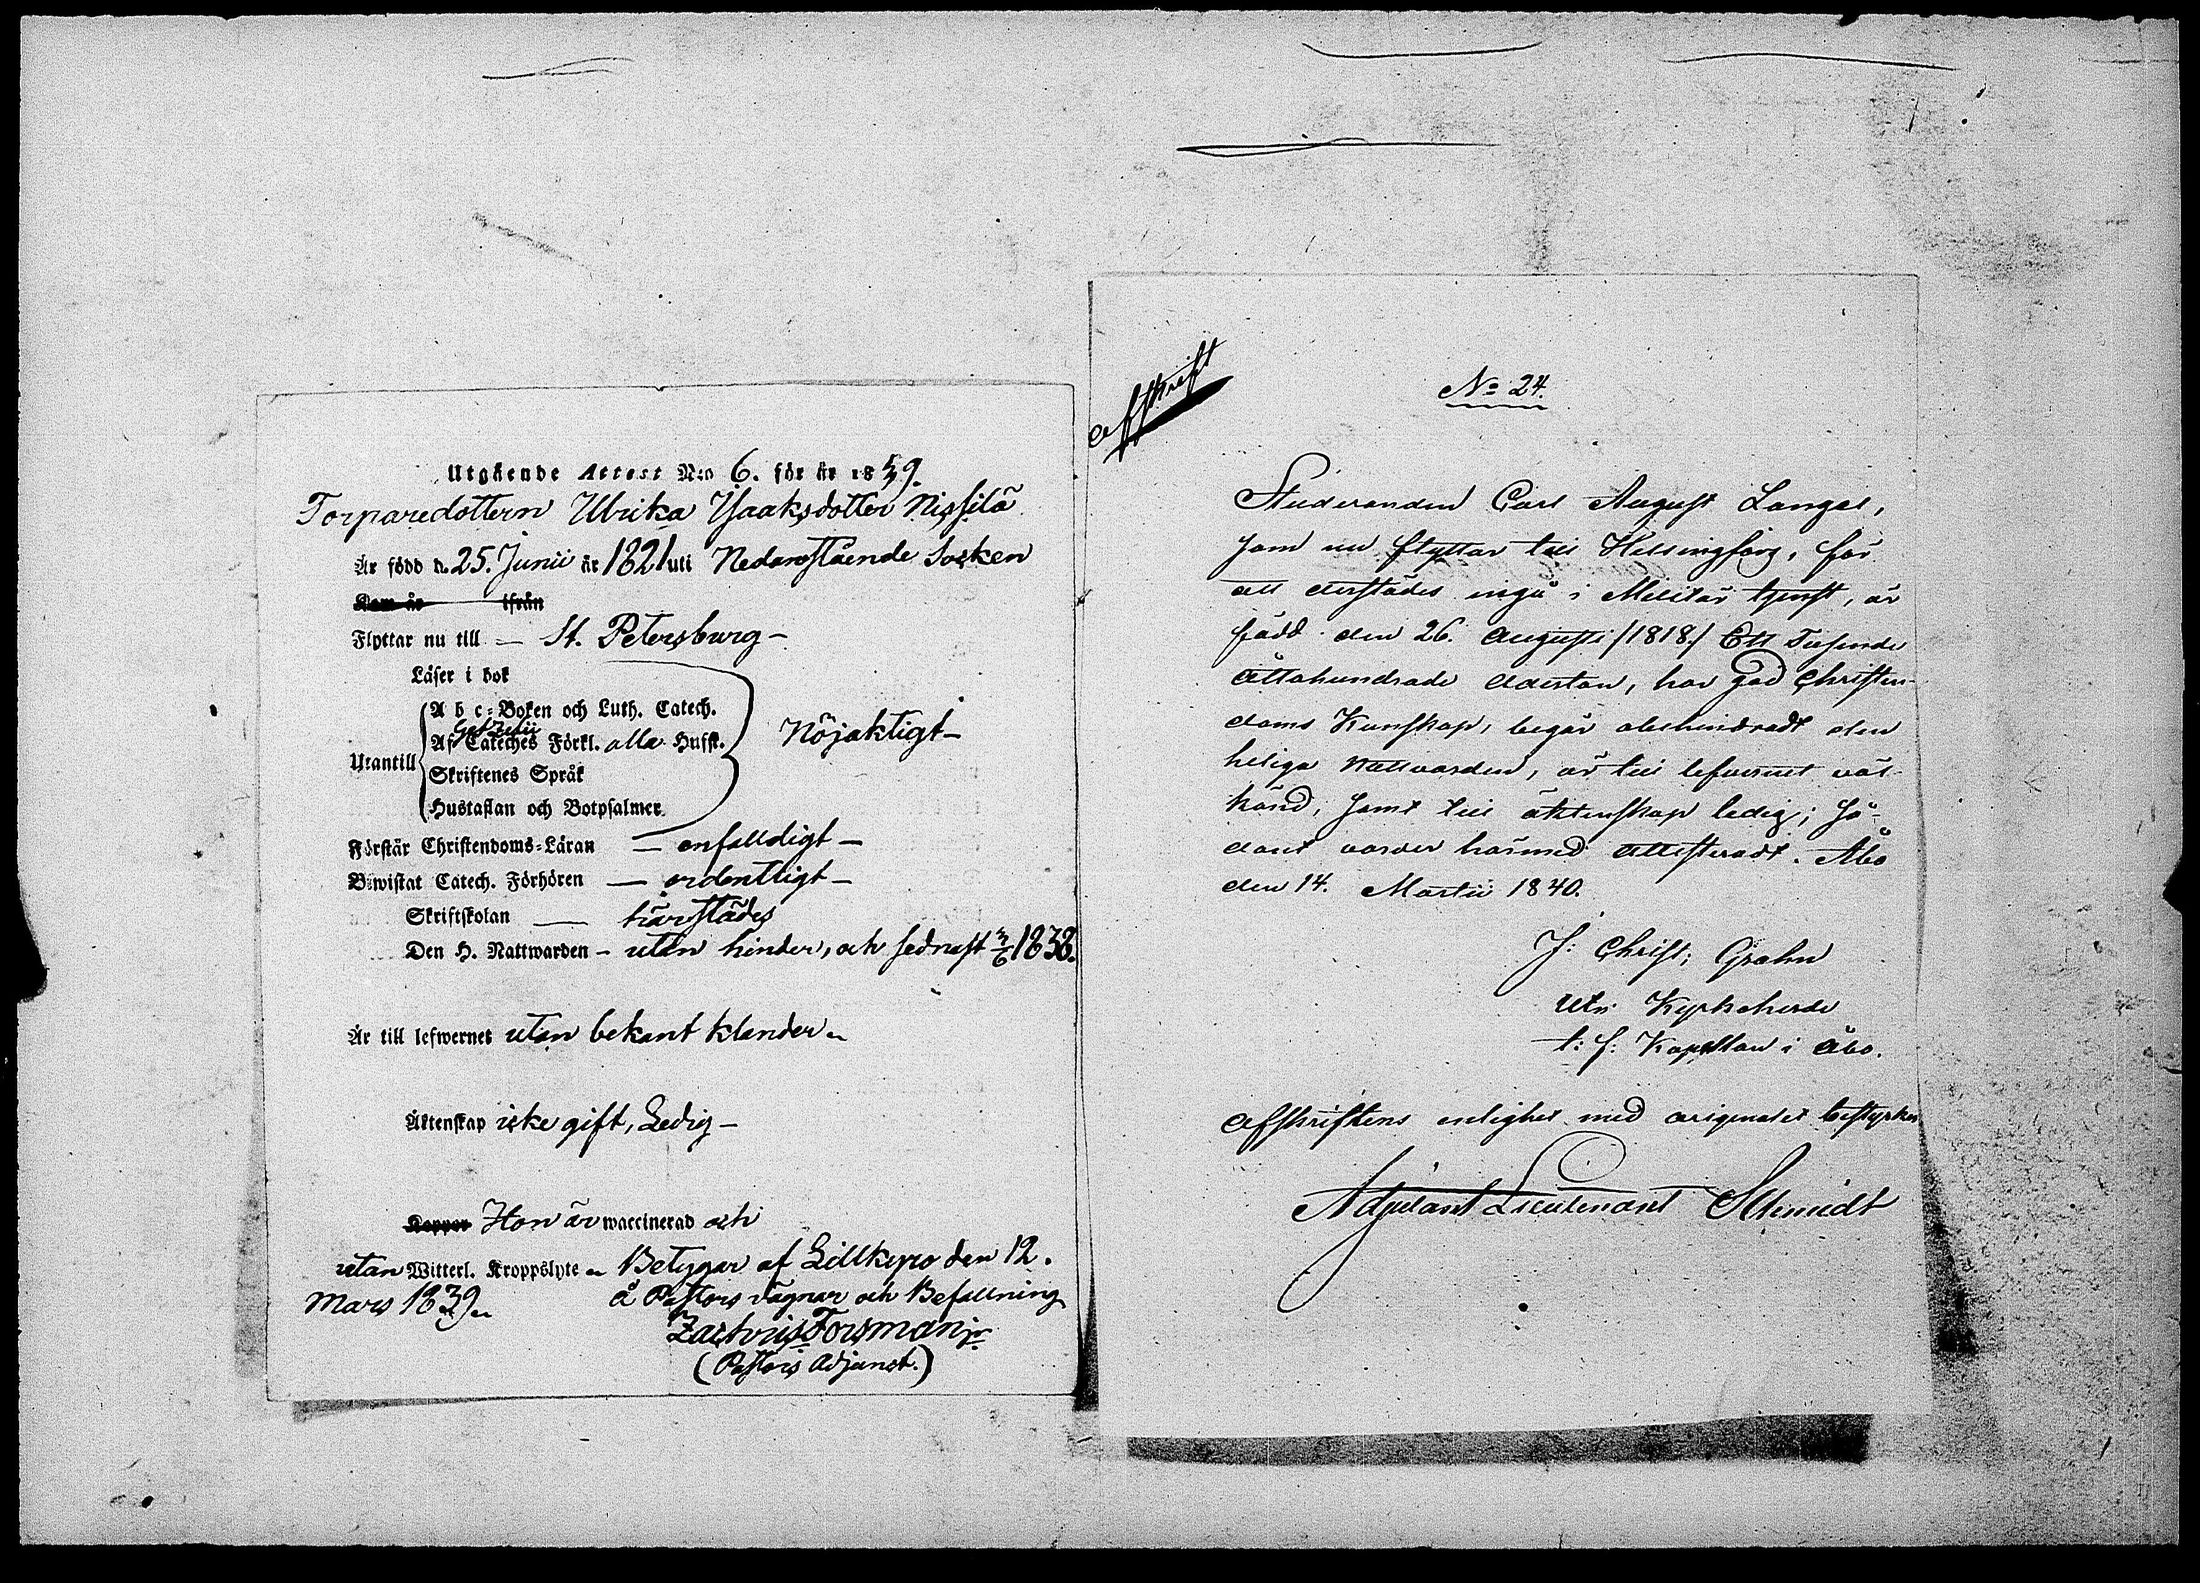 Utgående Attest N:o 6. för år 1839.
Torparedottern Ulrika Isaaksdotter Nissilä
Är född d. 25. Junii år 1821 uti Nedanstående Socken
Kom år ifrån
Flyttar nu till — St. Petersburg —
Läser i bok
A b c-Boken och Luth. Catech.
Utantill Af Catechés Förkl. alla Husst. Nöjaktigt —
Skriftenes Språk
Hustaflan och Botpsalmer.
Förstår Christendoms-Läran — enfalldigt —
Bewistat Catech. Förhören — ordentligt —
Skriftskolan — härstädes
Den H. Nattwarden — utan hinder, och sednast 3/6 1838.
Är till lefwernet utan bekant klander
Äktenskap icke gift, Ledig —
Koppor Hon är waccinerad och
utan Witterl. Kroppslyte. Betygar af Lillkyro den 12.
Mars 1839. å Pastors vägnar och Befallning
Zachris Forsman jr
(Pastors Adjunct.)
Afskrift
No 24.
Studeranden Carl August Langel,
som nu flyttar till Helsingfors, för
att derstädes ingå i Militär tjenst, är
född den 26. Augusti /1818./ Ett Tusende
Åttahundrade Aderton, har god Christen-
doms Kunskap, begår obehindradt den
heliga Nattvarden, är till lefvernet väl-
känd, samt till äktenskap ledig; så-
dant varder härmed attesteradt. Åbo
den 14. Martii 1840.
J: Christ: Grahn
Utn Kyrkoherde
t: f: Kapellan i Åbo.
Afskriftens enlighet med originalet bestyrker
Adjutant Lieutenant Schmidt